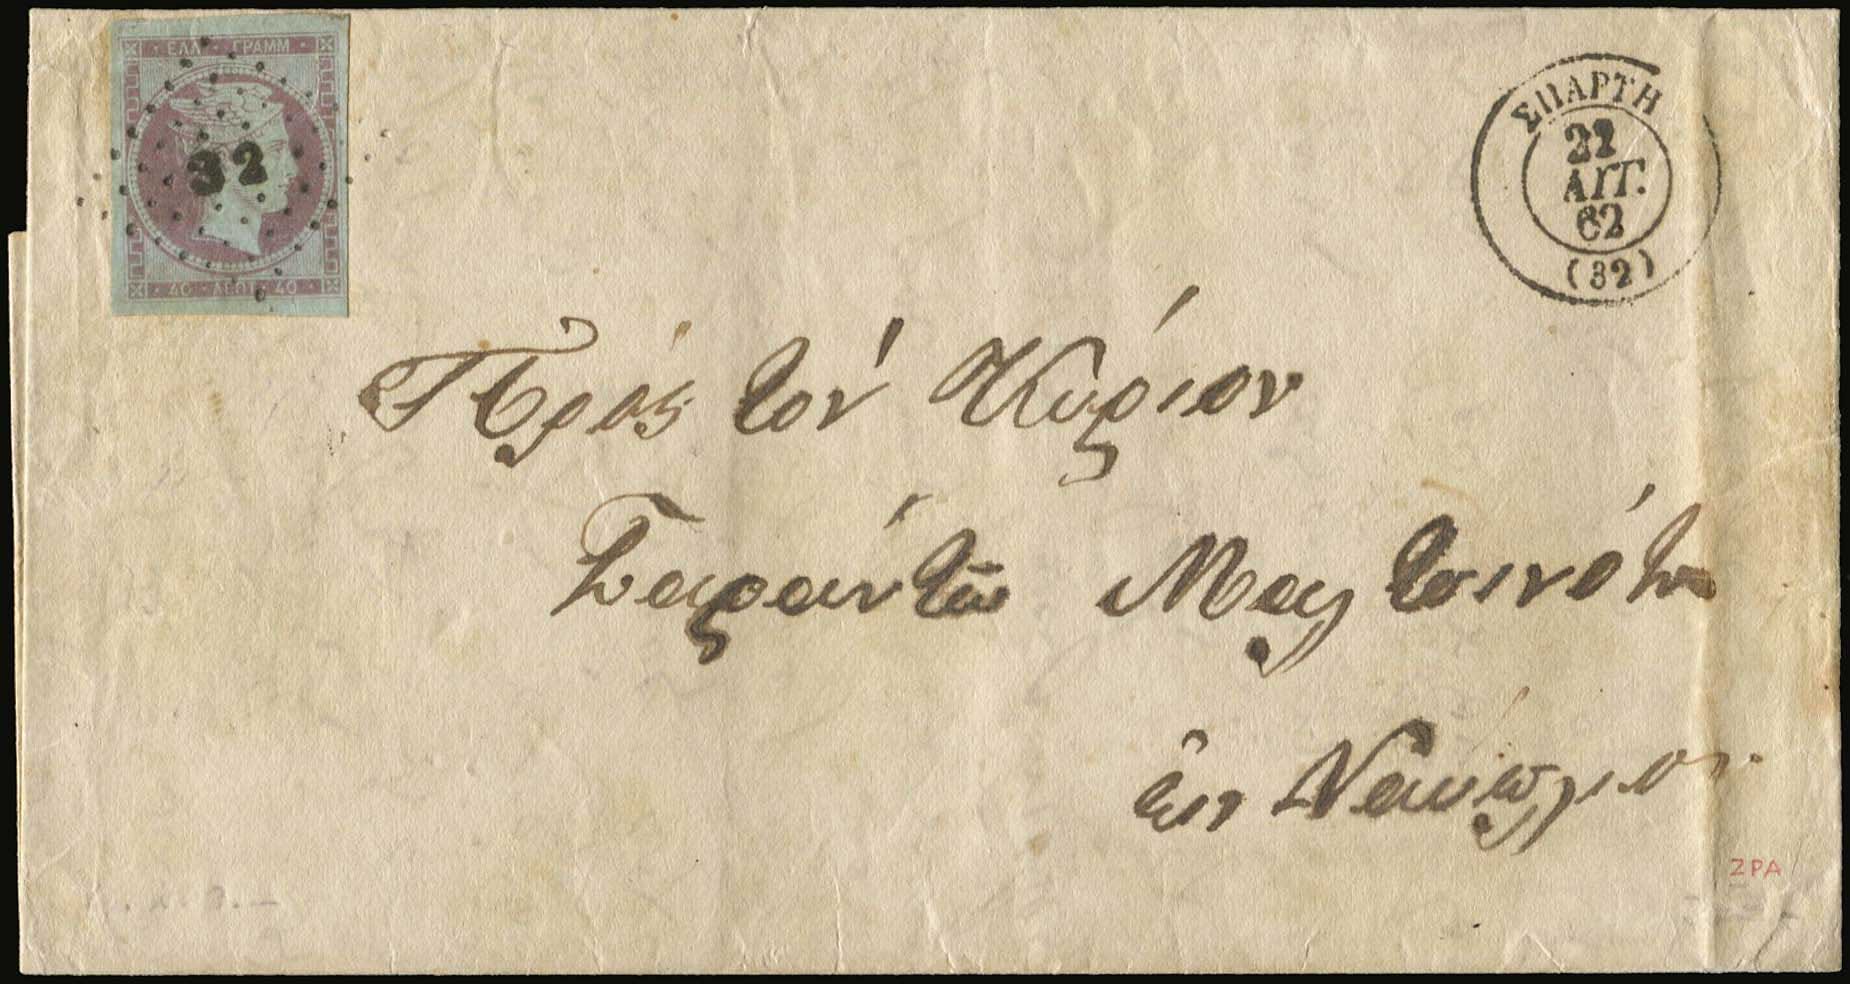 ΕΛΛ · ΓΡΑΜΜ
32
40 · ΛΕΠΤ · 40
ΣΠΑΡΤΗ
22
ΑΥΓ.
62
(32)
Πρὸς τὸν Κύριον
Σαράντον
εἰς Ναύπλιον.
ZPA